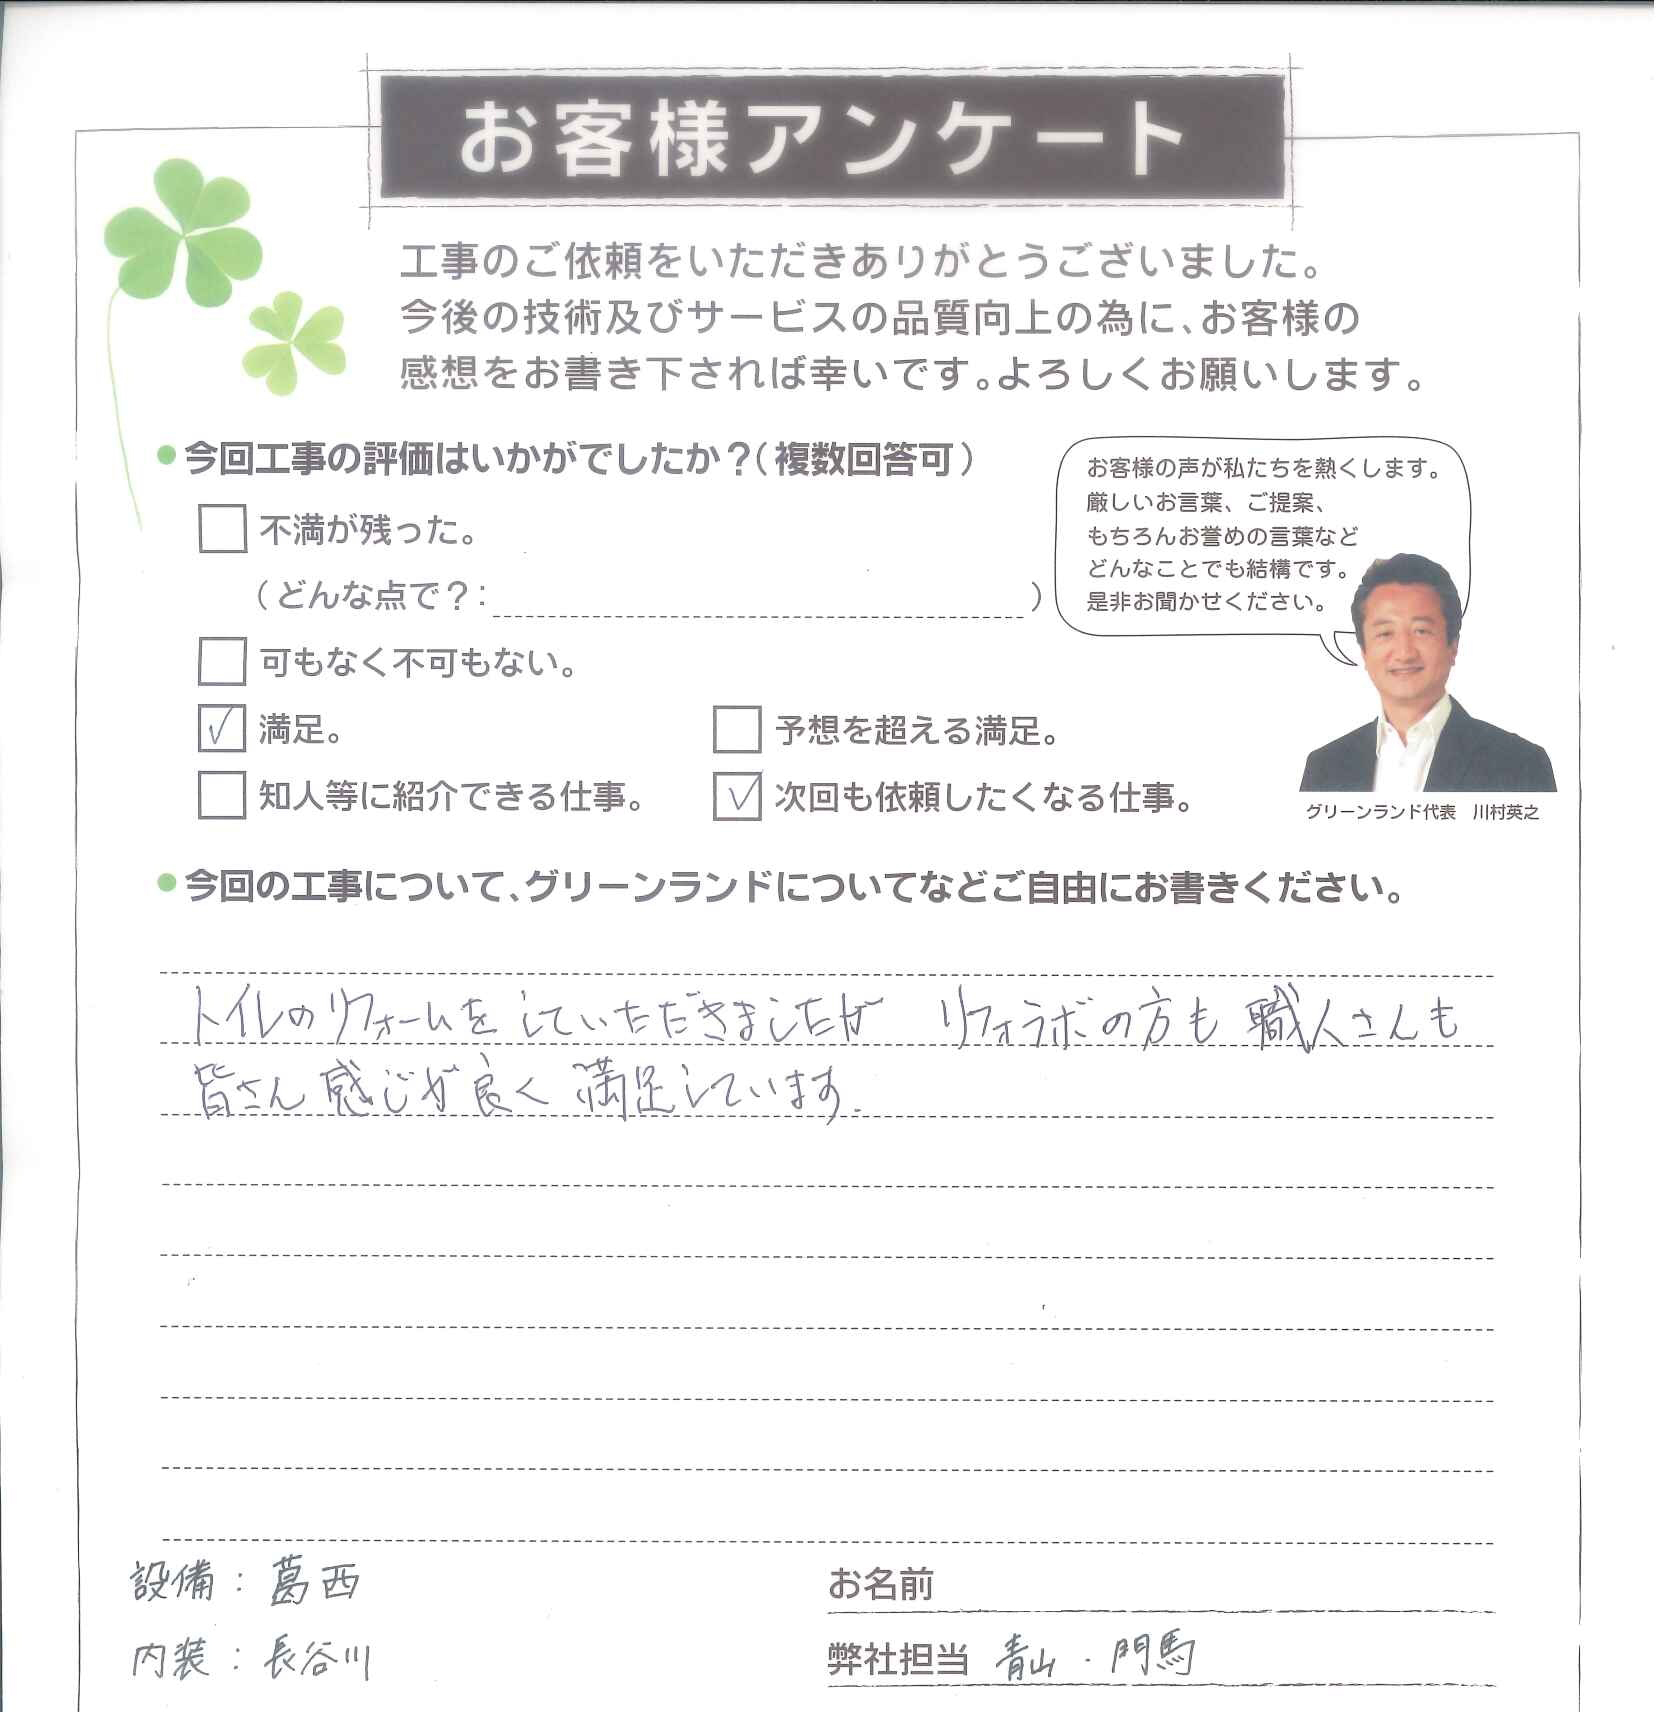 お客様アンケート
工事のご依頼をいただきありがとうございました。
今後の技術及びサービスの品質向上の為に、お客様の
感想をお書き下されば幸いです。よろしくお願いします。
今回工事の評価はいかがでしたか？（複数回答可）
不満が残った。
（どんな点で？：　　　）
可もなく不可もない。
満足。
予想を超える満足。
知人等に紹介できる仕事。
次回も依頼したくなる仕事。
お客様の声が私たちを熱くします。
厳しいお言葉、ご提案、
もちろんお誉めの言葉など
どんなことでも結構です。
是非お聞かせください。
グリーンランド代表　川村英之
今回の工事について、グリーンランドについてなどご自由にお書きください。
トイレのリフォームをしていただきましたが　リフォラボの方も職人さんも
皆さん感じが良く満足しています.
設備：葛西
内装：長谷川
お名前
弊社担当　青山・門馬